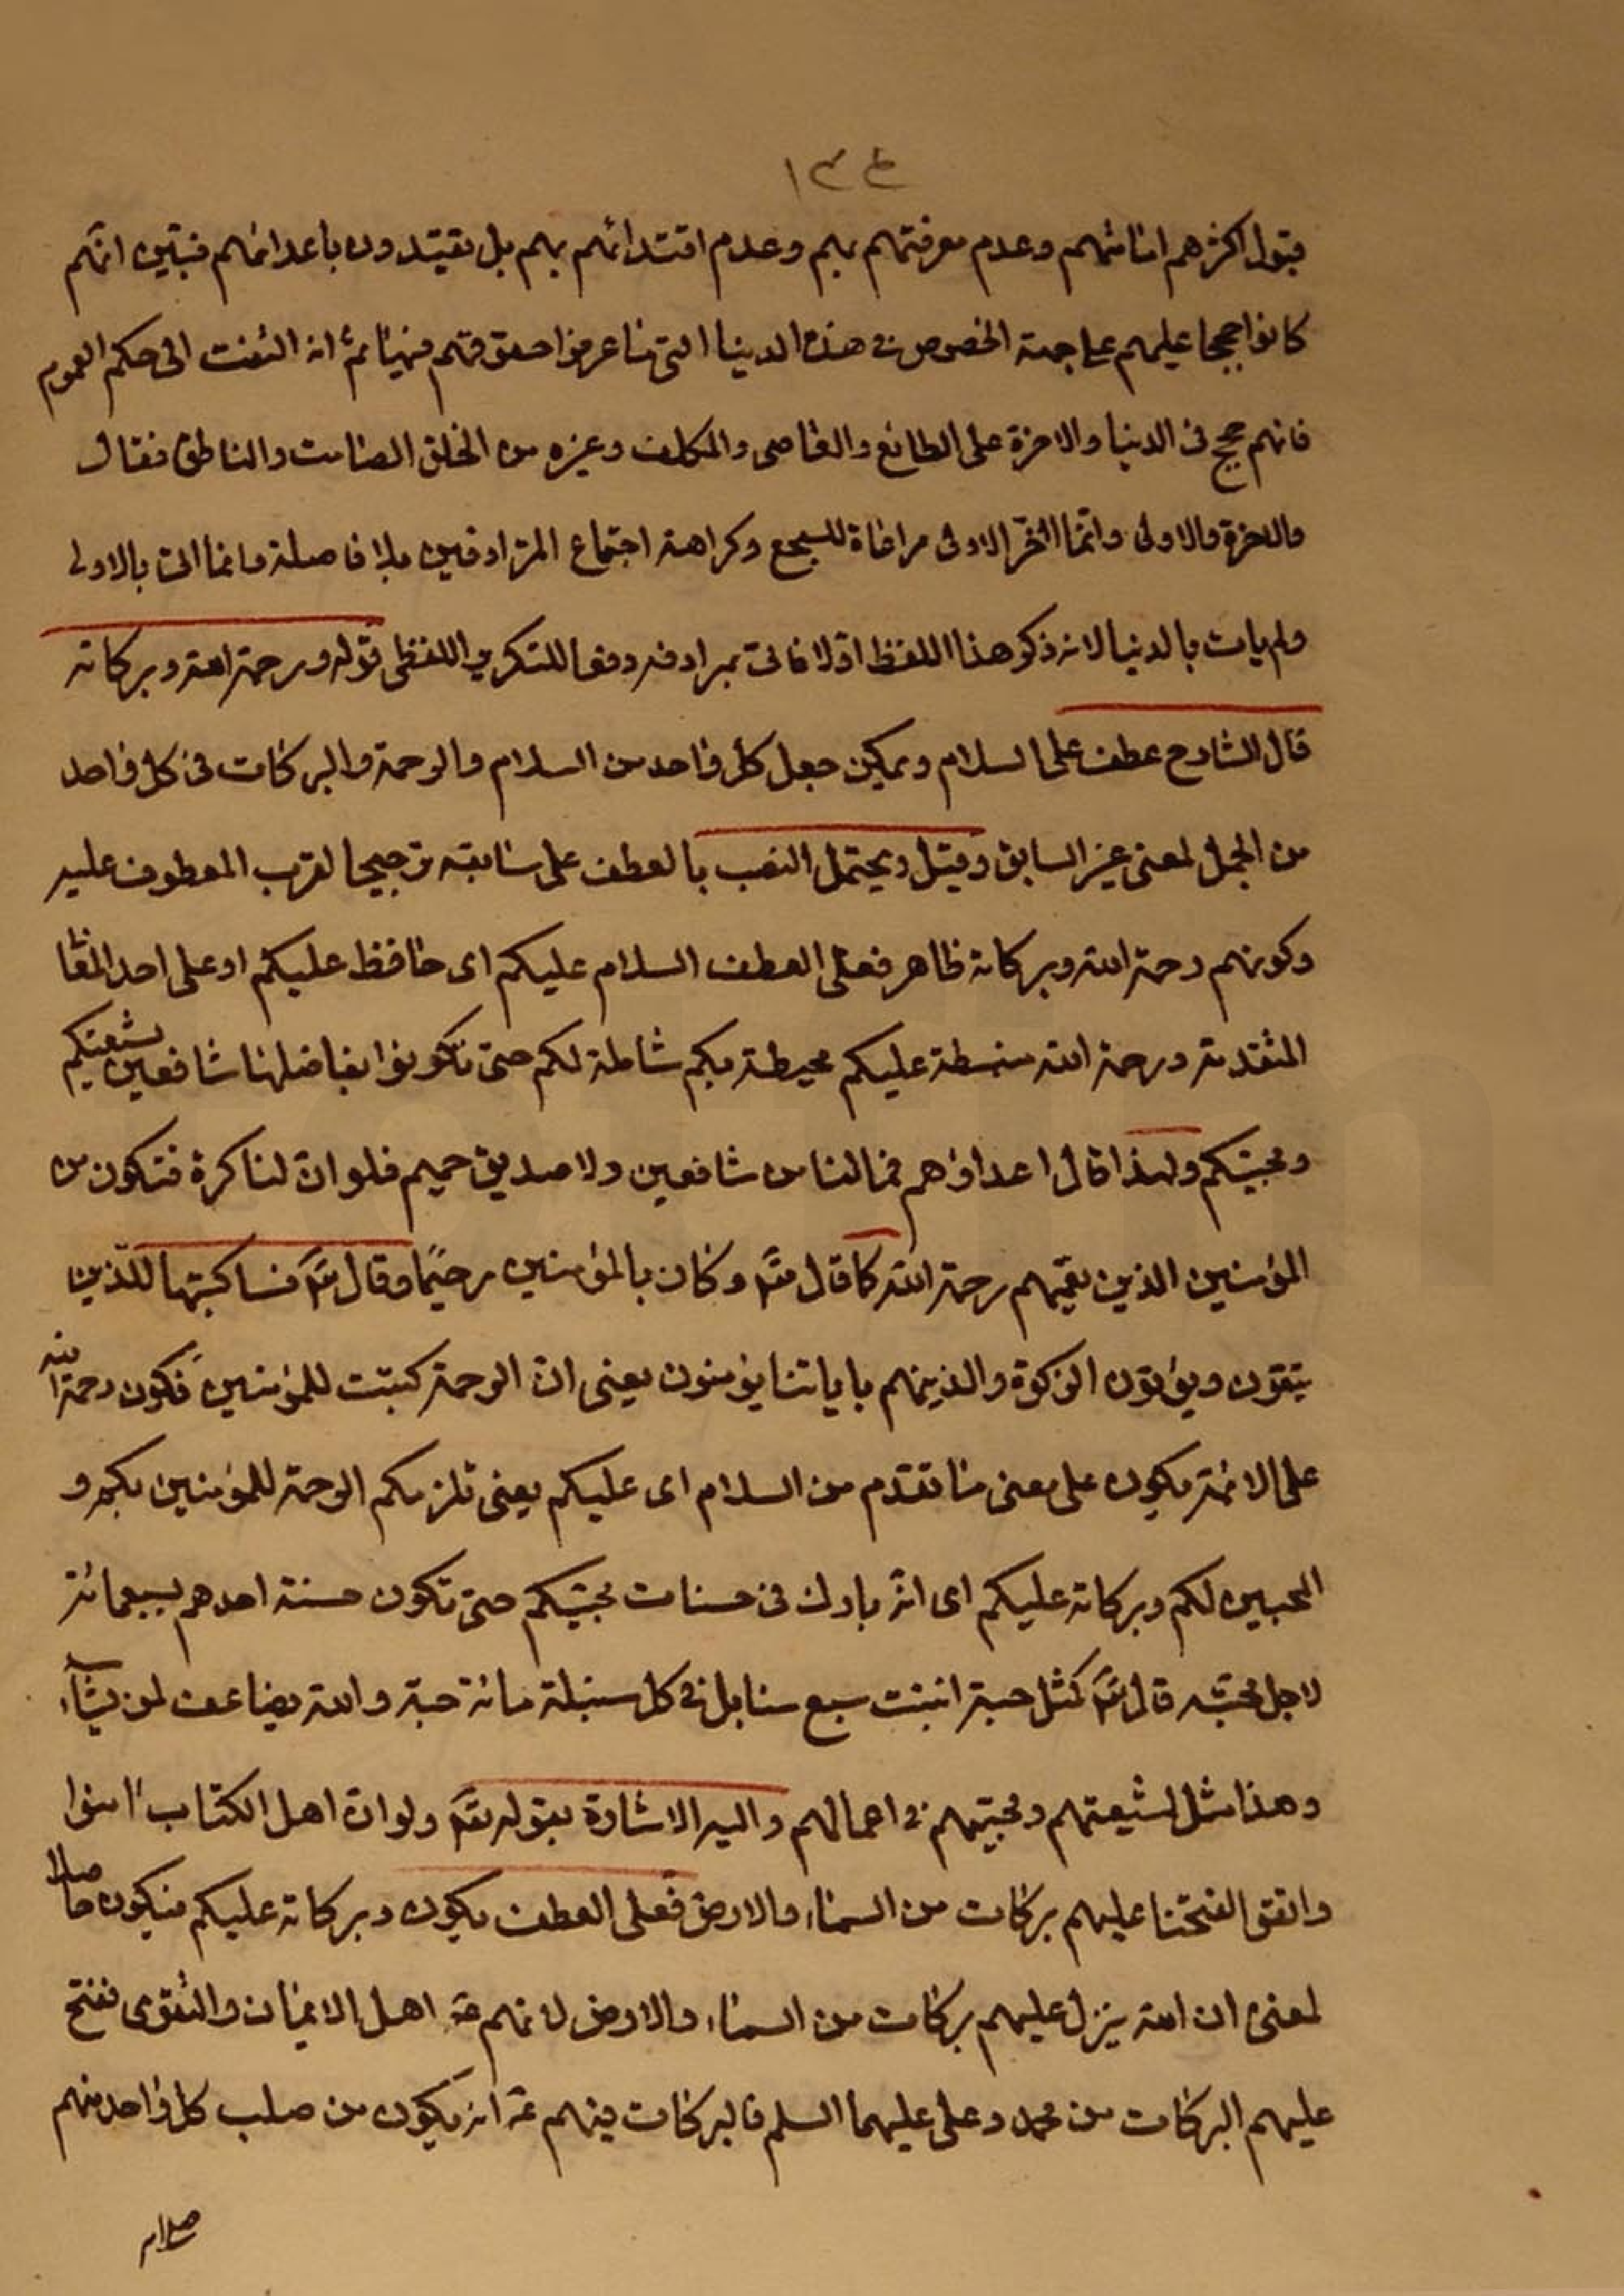 ١٣٤
قبول اكثرهم امامتهم وعدم معرفتهم بهم وعدم اقتدائهم بهم بل يقتدون باعدائهم فتبين انهم
كانوا حججا عليهم على جهة الخصوص فى هذه الدنيا التى ما عرفوا حقوقهم فيها ثم انه التفت الى حكم العموم
فانهم حجج فى الدنيا والاخرة على الطائع والعاصى والمكلف وغيره من الخلق الصامت والناطق فقال
والاخرة والاولى وانما اخّر الاولى مراعاة للسجع وكراهة اجتماع المترادفين بلا فاصلة وانما اتى بالاولى
ولم يات بالدنيا لانه ذكر هذا اللفظ اولا فاتى بمرادفه دفعا للتكرير اللفظى قوله ورحمة الله وبركاته
قال الشارح عطف على السلام ويمكن جعل كل واحد من السلام والرحمة والبركات فى كل واحد
من الجمل لمعنى غير السابق وقيل ويحتمل النصب بالعطف على سابقه ترجيحا لقرب المعطوف عليه
وكونهم رحمة الله وبركاته ظاهر فعلى العطف السلام عليكم اى حافظ عليكم او على احد المعا
المتقدمة ورحمة الله منبسطة عليكم محيطة بكم شاملة لكم حتى تكونوا بفاضلها شافعين لشيعتكم
ومحبيكم ولهذا قال اعداؤهم فما لنا من شافعين ولا صديق حميم فلو ان لنا كرة فنكون من
المؤمنين الذين تعمّهم رحمة الله كما قال تعۤ وكان بالمؤمنين رحيمًا وقال تعۤ فساكتبها للذين
يتقون ويؤتون الزكوة والذينهم باياتنا يؤمنون يعنى ان الرحمة كتبت للمؤمنين فكون رحمة الله
على الائمة يكون على معنى ما تقدم من السلام اى عليكم يعنى تلزمكم الرحمة للمؤمنين بكم و
المحبين لكم وبركاته عليكم اى انه بارك فى حسنات محبيكم حتى تكون حسنة احدهم بسبعمائة
لاجل محبته قال تعۤ كمثل حبة انبتت سبع سنابل فى كل سنبلة مائة حبة والله يضاعف لمن يشآء
وهذا مثل لشيعتهم ومحبيهم فى اعمالهم واليه الاشارة بقوله تعۤ ولو ان اهل الكتاب امنوا
واتقوا لفتحنا عليهم بركات من السماء والارض فعلى العطف يكون وبركاته عليكم فيكون حاصل
لمعنى ان الله ينزل عليهم بركات من السماء والارض لانهم عۤ اهل الايمان والتقوى ففتح
عليهم البركات من محمد وعلى عليهما السلم فالبركات فيهم عۤ انه يكون من صلب كل واحد منهم